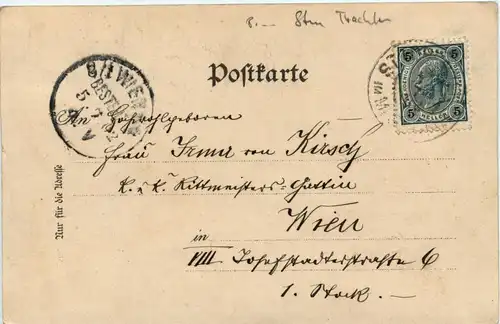 8.— Stm Trachten
Postkarte
8/1 WIEN
BESTELLT
An Hochwohlgeboren
Frau Irma von Kirsch
k. u. k. Rittmeisters-Gattin
Wien
in
VIII Josefstädterstraße 6
1. Stock.—
Nur für die Adresse
5 5
5 HELLER 5